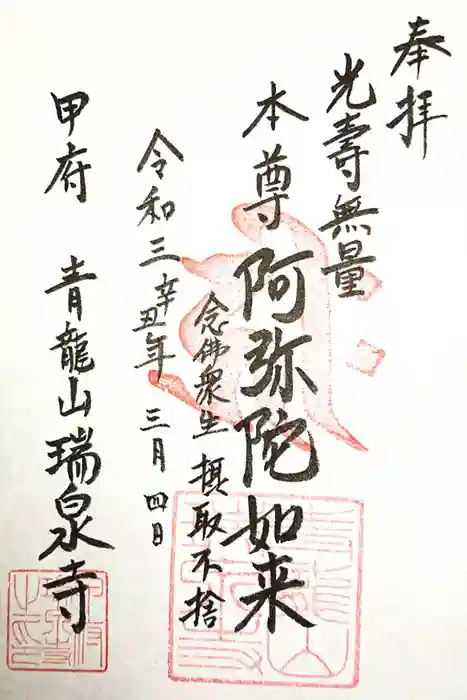 奉拝
光壽無量
本尊 阿弥陀如来
念佛衆生 摂取不捨
令和三辛丑年 三月四日
甲府 青龍山 瑞泉寺